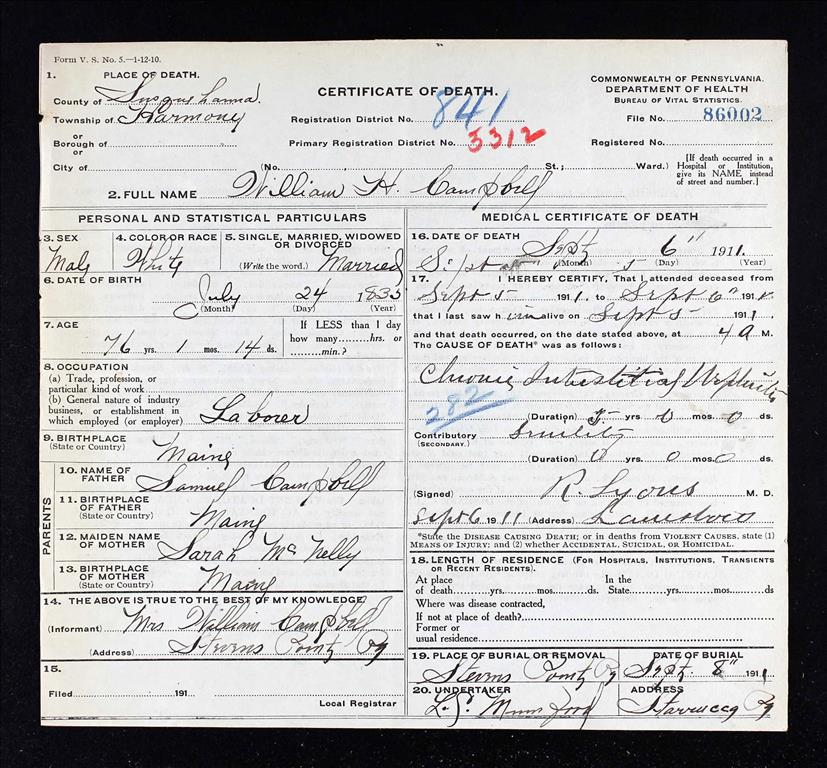 Form V. S. No. 5.—1-12-10.
1. PLACE OF DEATH.
County of Susquehanna.
Township of Harmony
or
Borough of
or
City of
CERTIFICATE OF DEATH.
Registration District No. 841
Primary Registration District No. 3312
(No. St.; Ward.)
COMMONWEALTH OF PENNSYLVANIA.
DEPARTMENT OF HEALTH
BUREAU OF VITAL STATISTICS.
File No. 86002
Registered No.
[If death occurred in a Hospital or Institution, give its NAME instead of street and number.]
2. FULL NAME William H. Campbell
PERSONAL AND STATISTICAL PARTICULARS
3. SEX
Male
4. COLOR OR RACE
White
5. SINGLE, MARRIED, WIDOWED OR DIVORCED
(Write the word.) Married
6. DATE OF BIRTH
July 24 1835
(Month) (Day) (Year)
7. AGE
76 yrs. 1 mos. 14 ds.
If LESS than 1 day
how many hrs. or
min.?
8. OCCUPATION
(a) Trade, profession, or
particular kind of work
(b) General nature of industry
business, or establishment in
which employed (or employer) Laborer
9. BIRTHPLACE
(State or Country)
Maine
PARENTS
10. NAME OF FATHER
Samuel Campbell
11. BIRTHPLACE OF FATHER
(State or Country)
Maine
12. MAIDEN NAME OF MOTHER
Sarah McNelly
13. BIRTHPLACE OF MOTHER
(State or Country)
Maine
14. THE ABOVE IS TRUE TO THE BEST OF MY KNOWLEDGE
(Informant) Mrs William Campbell
(Address) Stevens Point Pa
15.
Filed 191
Local Registrar
MEDICAL CERTIFICATE OF DEATH
16. DATE OF DEATH
Sept 6" 1911.
(Month) (Day) (Year)
Sept 5
17. I HEREBY CERTIFY, That I attended deceased from
Sept 5 1911 to Sept 6" 191
that I last saw him alive on Sept 5 1911
and that death occurred, on the date stated above, at 4 a M.
The CAUSE OF DEATH* was as follows:
Chronic Interstitial Nephritis
282
(Duration) 5 yrs 0 mos. 0 ds.
Contributory Senility
(SECONDARY.)
(Duration) 0 yrs. 0 mos. 0 ds.
(Signed) R. Lyons M. D.
Sept 6 1911 (Address) Lanesboro
*State the DISEASE CAUSING DEATH; or in deaths from VIOLENT CAUSES, state (1) MEANS OF INJURY; and (2) whether ACCIDENTAL, SUICIDAL, OR HOMICIDAL.
18. LENGTH OF RESIDENCE (FOR HOSPITALS, INSTITUTIONS, TRANSIENTS OR RECENT RESIDENTS).
At place In the
of death yrs. mos. ds. State yrs. mos ds.
Where was disease contracted,
If not at place of death?
Former or
usual residence
19. PLACE OF BURIAL OR REMOVAL
Stevens Point Pa
DATE OF BURIAL
Sept. 8" 1911
20. UNDERTAKER
L. S. Mumford
ADDRESS
Starrucca Pa